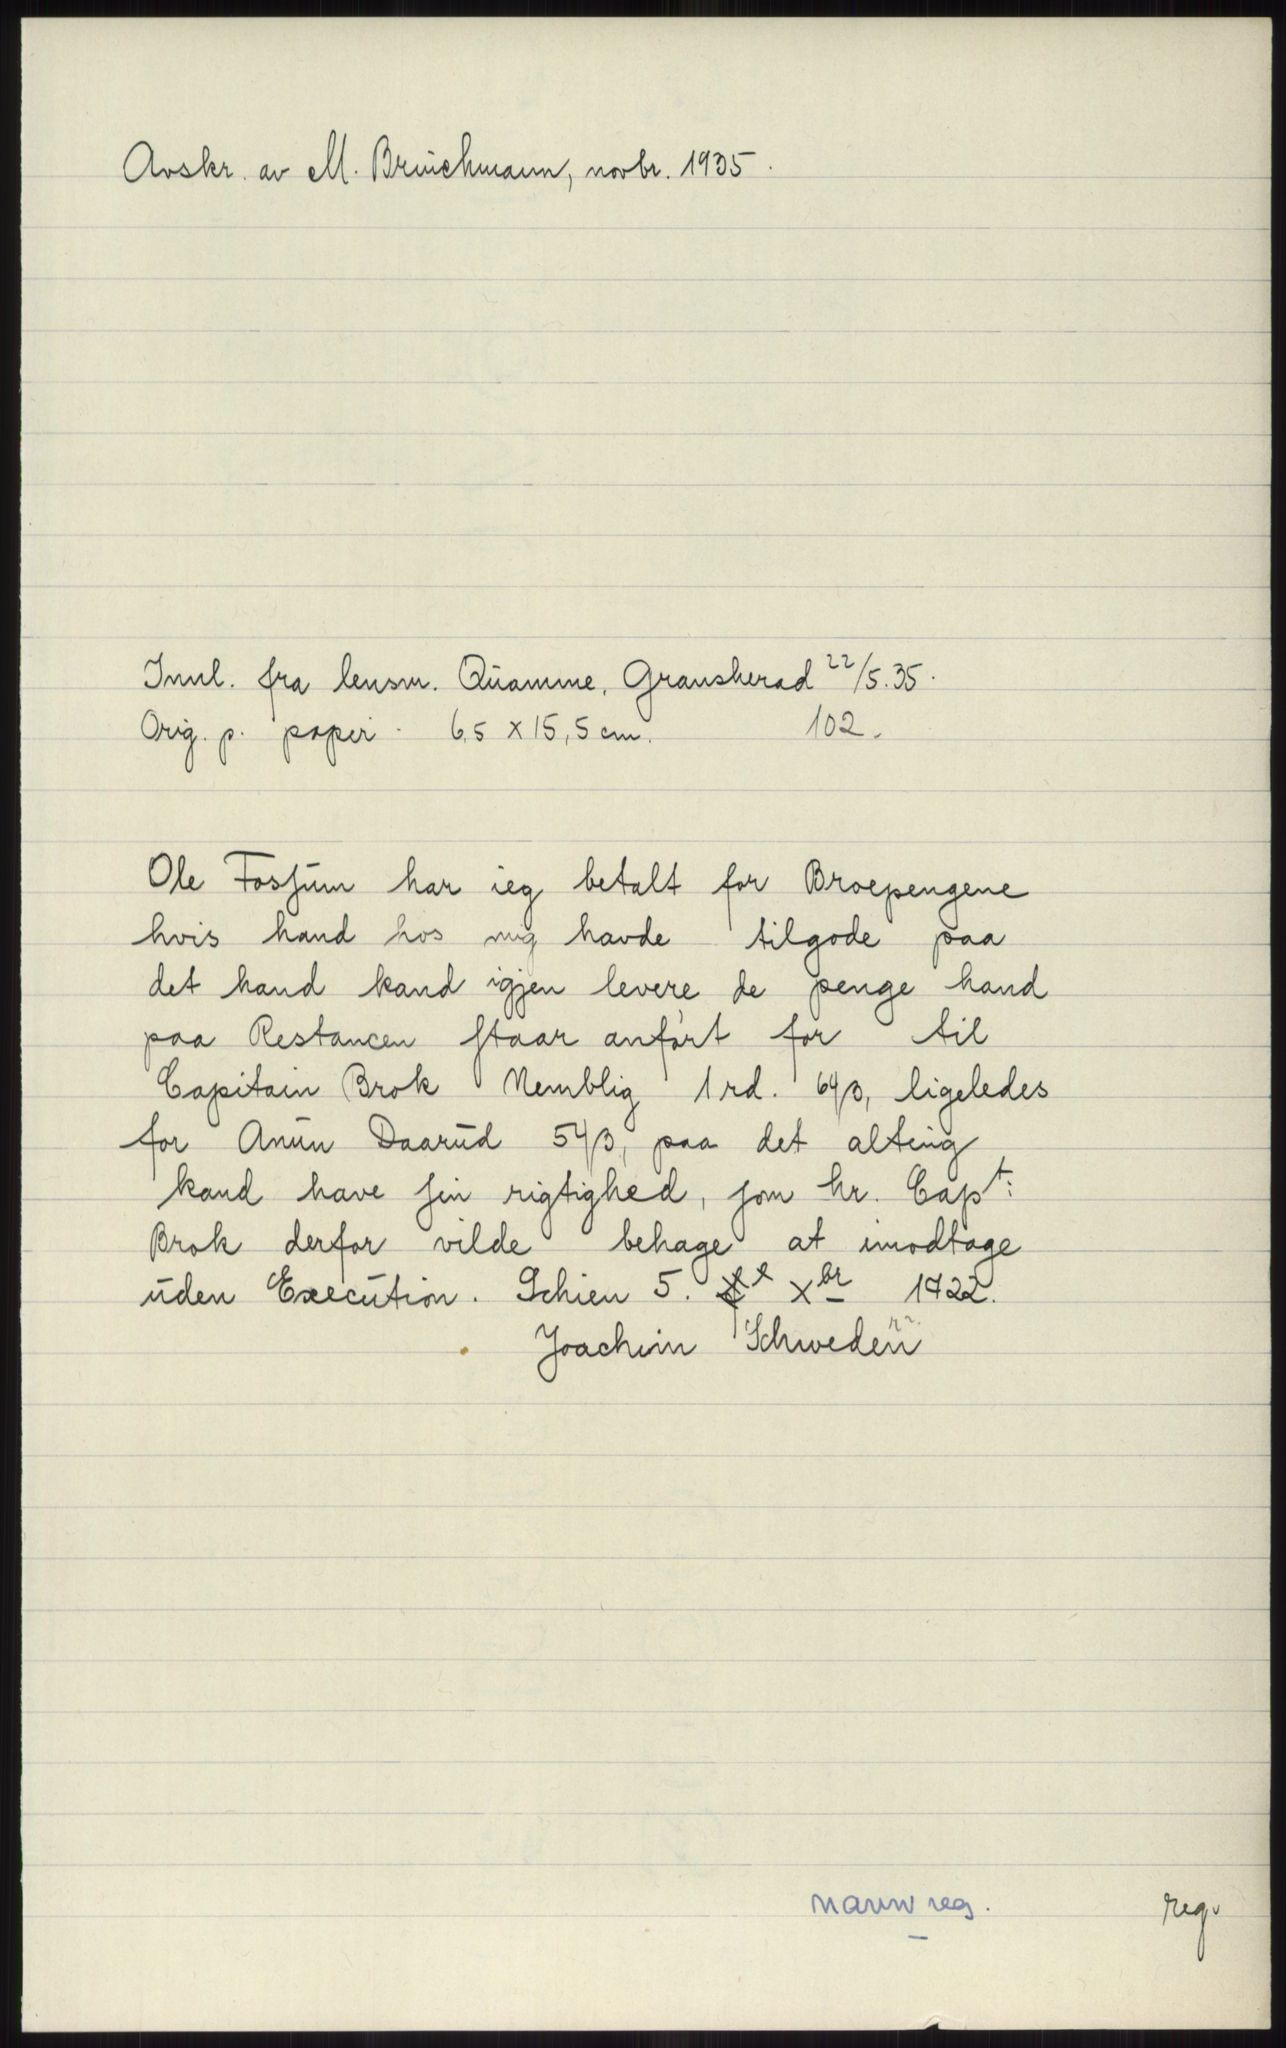 Avskr. av M. Brüichmann, novbr. 1935.
Innl. fra lensm. Qüamme, Gransherad 22/5.35.
Orig. p. papir. 6,5 x 15,5 cm. 102.
Ole Fossüm har ieg betalt for Broepengene
hvis hand hos mig havde tilgode paa
det hand kand igjen levere de penge hand
paa Restancen staar anført for til
Capitain Brok Nemblig 1 rd. 64 β, ligeledes
for Anün Daarüd 54 β, paa det alting
kand have sin rigtighed, som hr. Capt:
Brok derfor vilde behage at imodtage
üden Execütion. Schien 5. Xbr 1722.
Joachim Schweden
navnreg. reg.